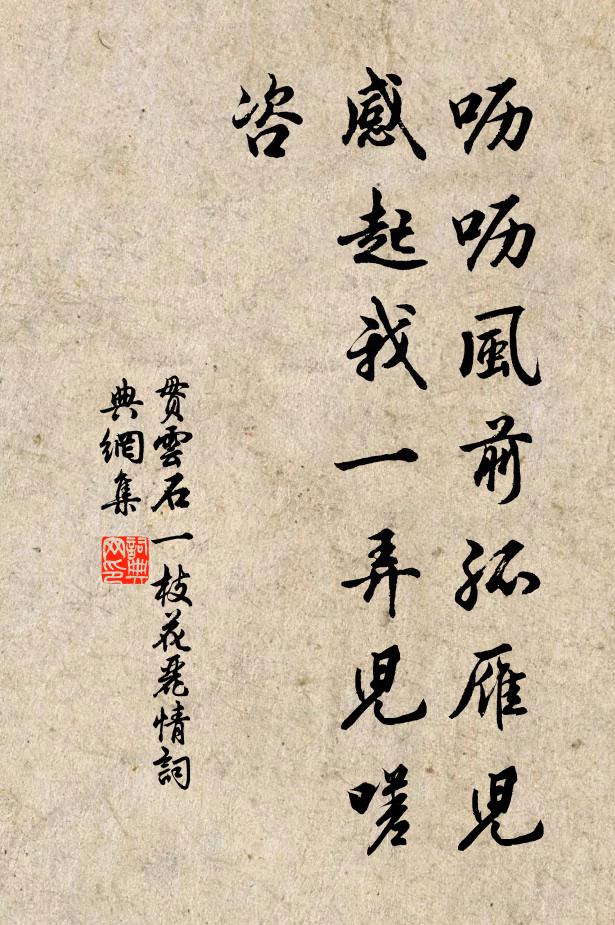 呖呖風前孤雁兒
感起我一弄兒嗟
咨
貫雲石一枝花麗情詞
典網集
詞典
网印